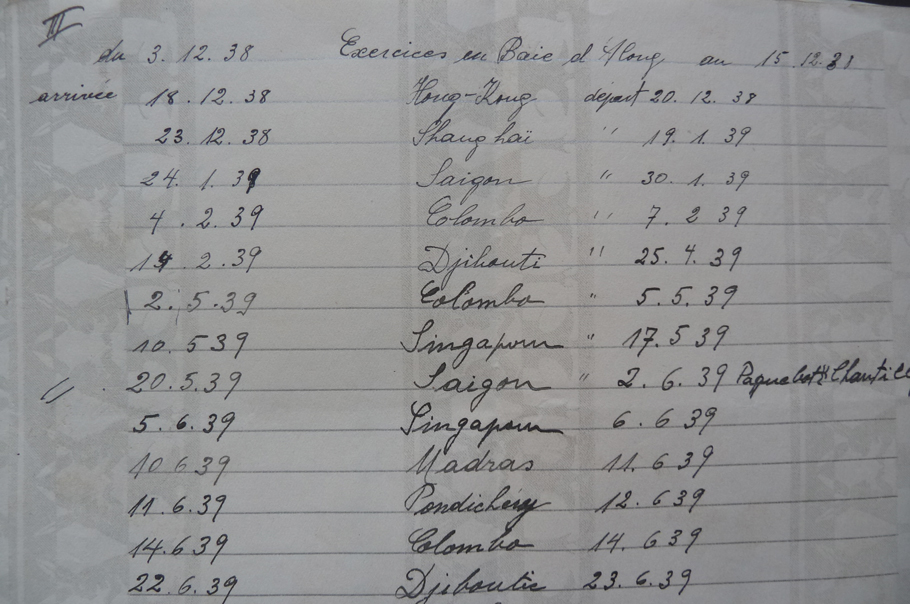 III
du 3.12.38 Exercices en Baie d'Along au 15.12.38
arrivée 18.12.38 Hong-Kong départ 20.12.38
23.12.38 Shanghaï " 19.1.39
24.1.39 Saigon " 30.1.39
4.2.39 Colombo " 7.2 39
14.2.39 Djibouti " 25.4.39
2.5.39 Colombo " 5.5.39
10.5 39 Singapour " 17.5 39
" 20.5.39 Saigon " 2.6.39 Paquebot "Chantilly
5.6.39 Singapour 6.6.39
10 6 39 Madras 11.6 39
11.6.39 Pondichéry 12.6 39
14.6 39 Colombo 14.6 39
22.6.39 Djiboutie 23.6.39